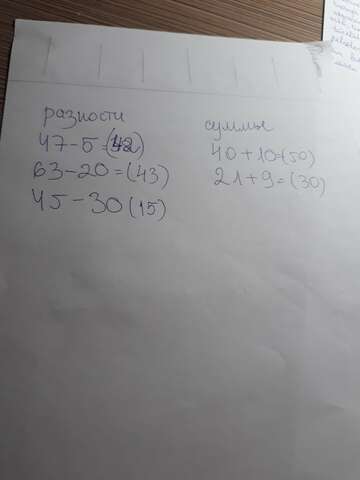 разности
47-5=(42)
63-20=(43)
45-30(15)
суммы
40+10=(50)
21+9=(30)